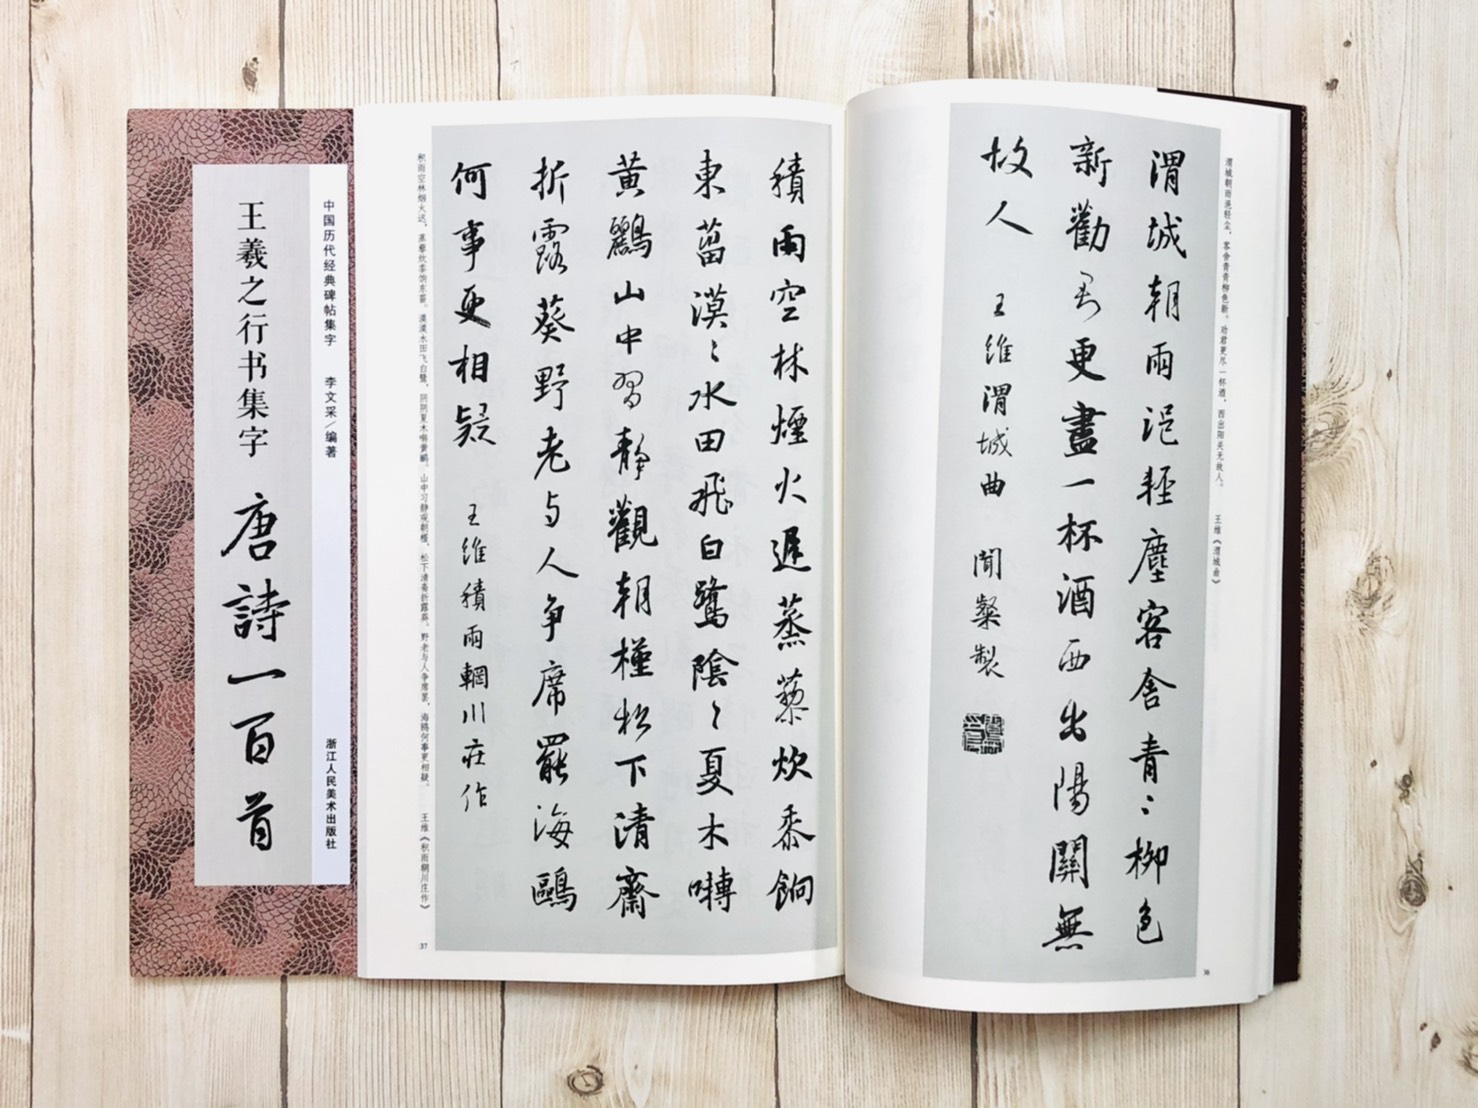 渭城朝雨浥轻尘，客舍青青柳色新。劝君更尽一杯酒，西出阳关无故人。 王维《渭城曲》
渭城朝雨浥輕塵客舍青〻柳色
新勸君更盡一杯酒西出陽關無
故人 王維渭城曲 聞粲製
36
積雨空林煙火遲蒸藜炊黍餉
東菑漠〻水田飛白鷺陰〻夏木囀
黄鸝山中習靜觀朝槿松下清齋
折露葵野老与人争席罷海鷗
何事更相疑 王維積雨輞川莊作
积雨空林烟火迟，蒸藜炊黍饷东菑。漠漠水田飞白鹭，阴阴夏木啭黄鹂。山中习静观朝槿，松下清斋折露葵。野老与人争席罢，海鸥何事更相疑。 王维《积雨辋川庄作》
37
中国历代经典碑帖集字 李文采/编著 浙江人民美术出版社
王羲之行书集字 唐詩一百首